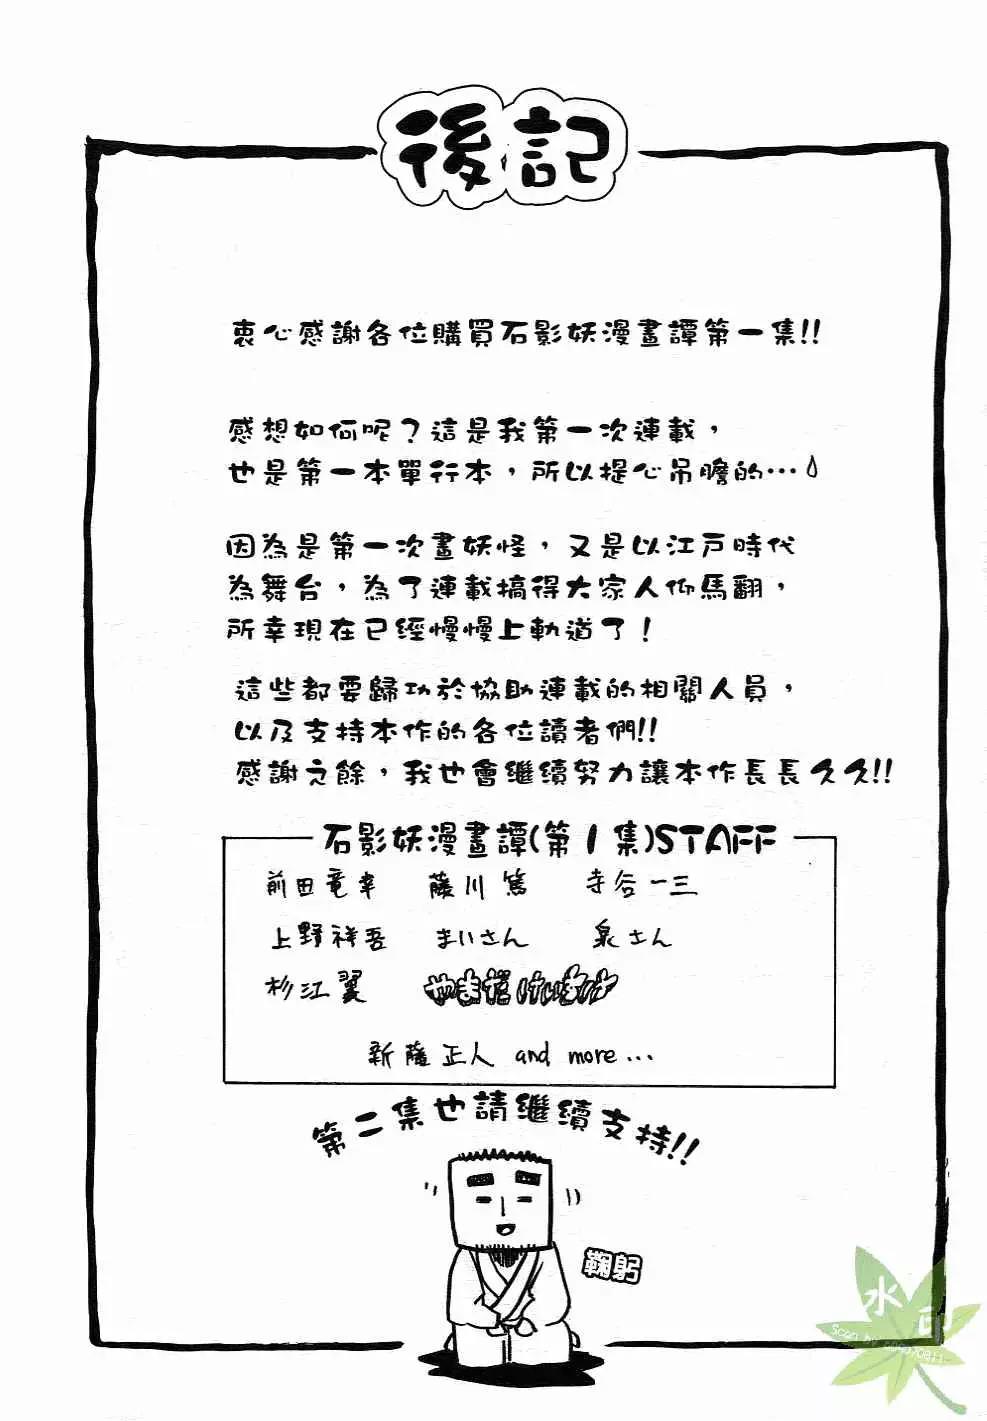 後記
衷心感謝各位購買石影妖漫畫譚第一集!!
感想如何呢?這是我第一次連載，
也是第一本單行本，所以提心吊膽的…
因為是第一次畫妖怪，又是以江戶時代
為舞台，為了連載搞得大家人仰馬翻，
所幸現在已經慢慢上軌道了!
這些都要歸功於協助連載的相關人員，
以及支持本作的各位讀者們!!
感謝之餘，我也會繼續努力讓本作長長久久!!
石影妖漫畫譚(第1集)STAFF
前田竜幸 藤川篤 寺谷一三
上野祥吾 まいさん 泉さん
杉江翼
新薩正人 and more...
第二集也請繼續支持!!
鞠躬
水印
Scan by